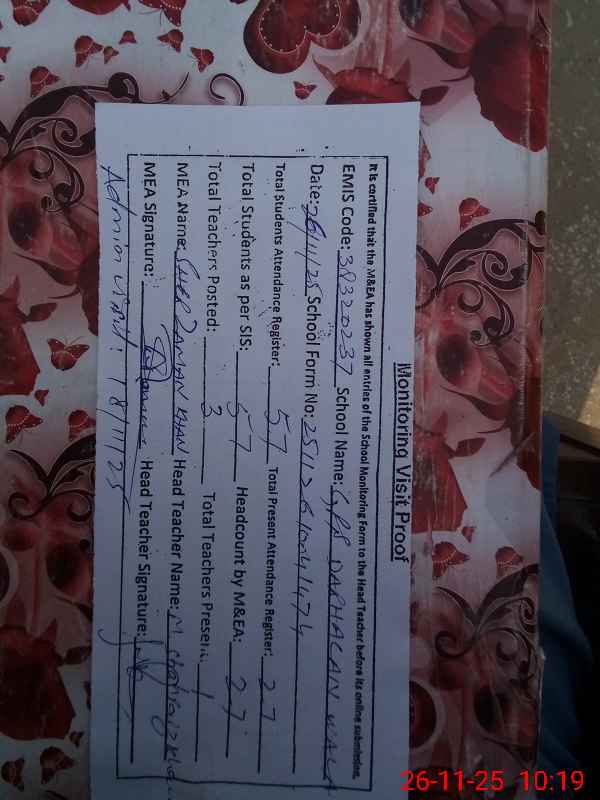 Monitoring Visit Proof
It is certified that the M&EA has shown all entries of the School Monitoring Form to the Head Teacher before its online submission.
EMIS Code: 38320237 School Name: GPS DAPHALAN WALA
Date: 26/11/25 School Form No: 25112610041474
Total Students Attendance Register: 57 Total Present Attendance Register: 27
Total Students as per SIS: 57 Headcount by M&EA: 27
Total Teachers Posted: 3 Total Teachers Present: 1
MEA Name: SHER ZAMAN KHAN Head Teacher Name: M
MEA Signature: Head Teacher Signature:
Admin visit: 18/11/25
26-11-25 10:19